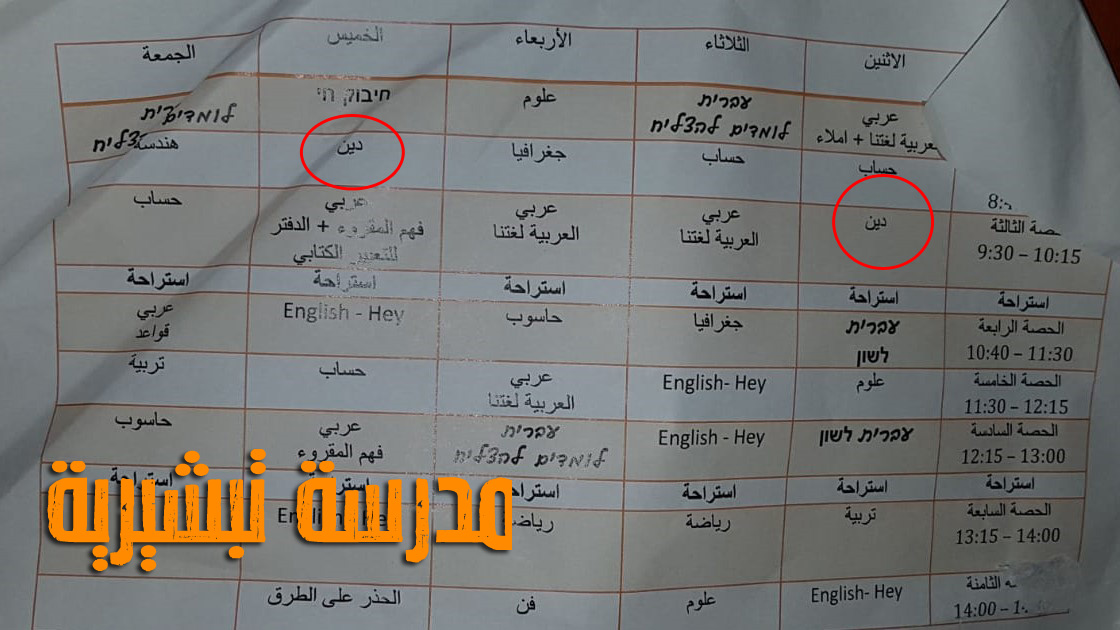 الاثنين
الثلاثاء
الأربعاء
الخميس
الجمعة
عربي
العربية لغتنا + املاء
עברית
לומדים להצליח
علوم
חיבוק חי
לומדים
حساب
حساب
جغرافيا
دين
هندسة
حصة الثالثة
9:30 – 10:15
دين
عربي
العربية لغتنا
عربي
العربية لغتنا
عربي
فهم المقروء + الدفتر
للتعبير الكتابي
حساب
استراحة
استراحة
استراحة
استراحة
استراحة
استراحة
الحصة الرابعة
10:40 – 11:30
עברית
לשון
جغرافيا
حاسوب
English - Hey
عربي
قواعد
الحصة الخامسة
11:30 – 12:15
علوم
English- Hey
عربي
العربية لغتنا
حساب
تربية
الحصة السادسة
12:15 – 13:00
עברית לשון
English - Hey
עברית
לומדים להצליח
عربي
فهم المقروء
حاسوب
استراحة
استراحة
استراحة
استراحة
استراحة
الحصة السابعة
13:15 – 14:00
تربية
رياضة
رياضة
مدرسة تبشيرية
الثامنة
14:00 –
English- Hey
علوم
فن
الحذر على الطرق